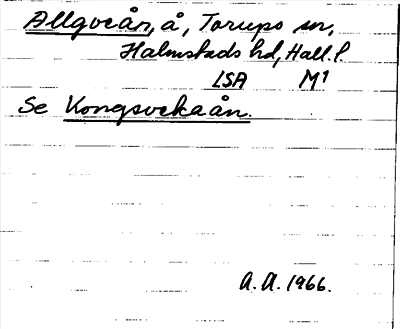 Allgoeån, å, Torups sn,
Halmstads hd, Hall. l.
LSA M¹
Se Kongsvekaån.
A.A. 1966.